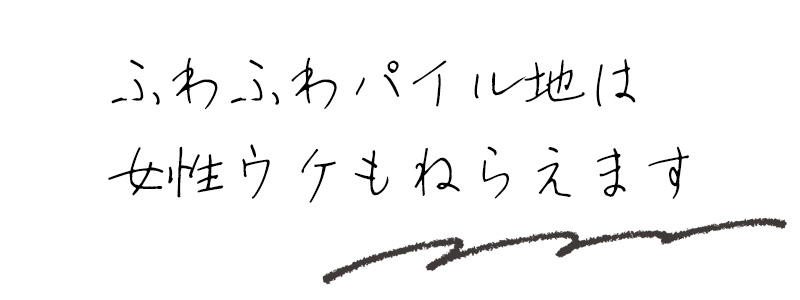 ふわふわパイル地は
女性ウケもねらえます